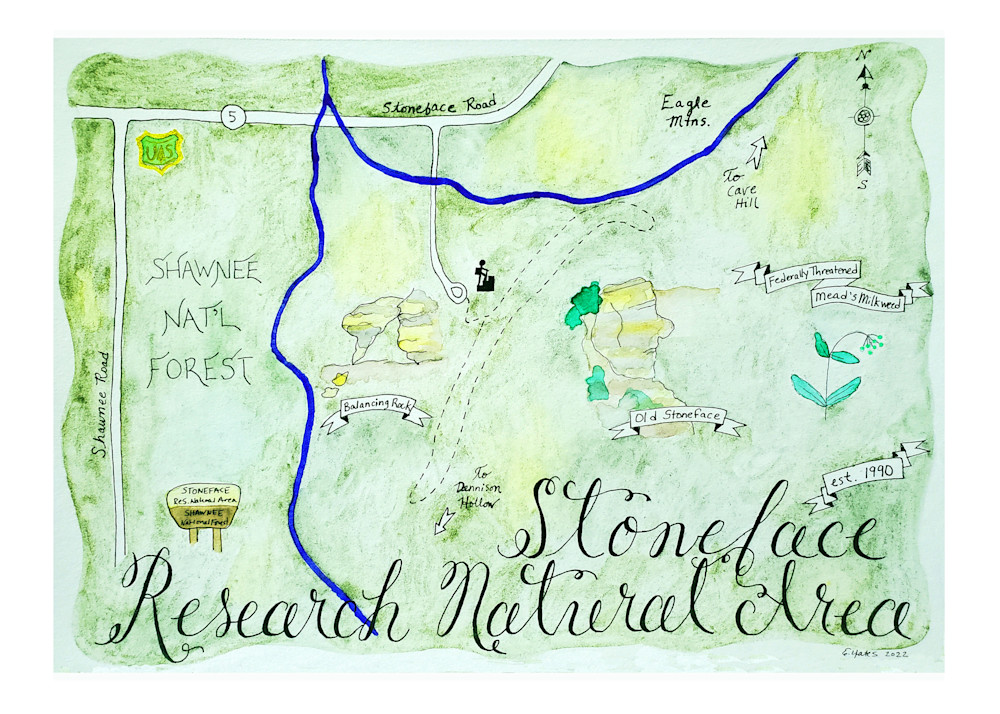 N
Stoneface Road
Eagle
Mtns.
5
US
To
Cave
Hill
S
SHAWNEE
NAT'L
FOREST
Federally Threatened
Mead's Milkweed
Shawnee Road
Balancing Rock
Old Stoneface
est. 1990
To
Dennison
Hollow
STONEFACE
Res. Natural Area
SHAWNEE
National Forest
Stoneface
Research Natural Area
G. Yates 2022